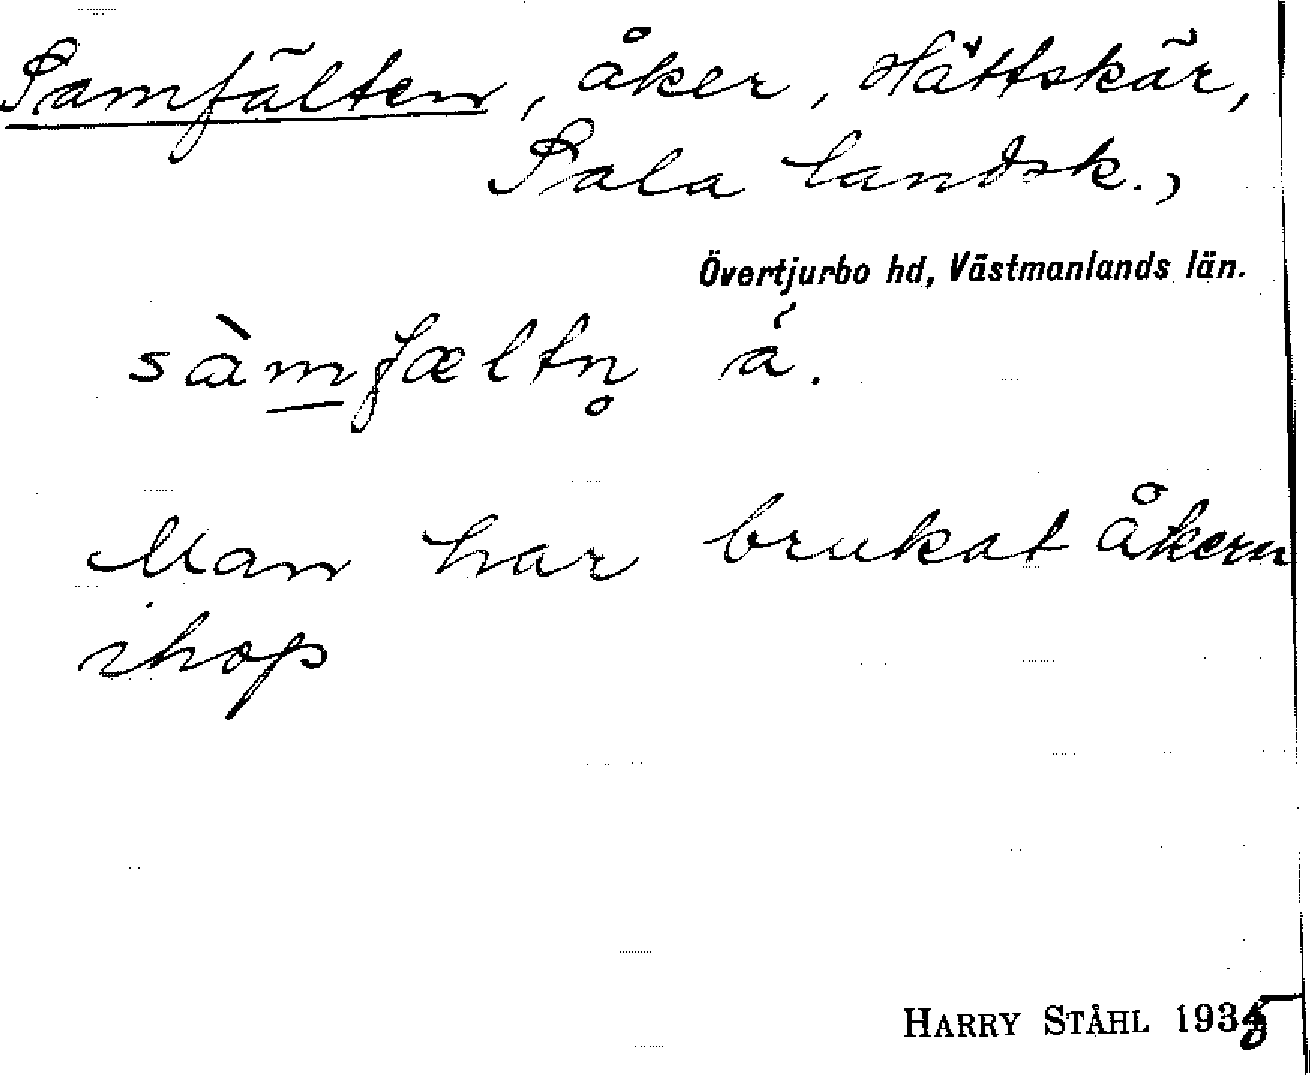 Samfälten, åker, Hättskär,
Sala landsk.,
Övertjurbo hd, Västmanlands län.
sàm̲fæltn̥ á.
Man har brukat åkern
ihop
HARRY STÅHL 1935